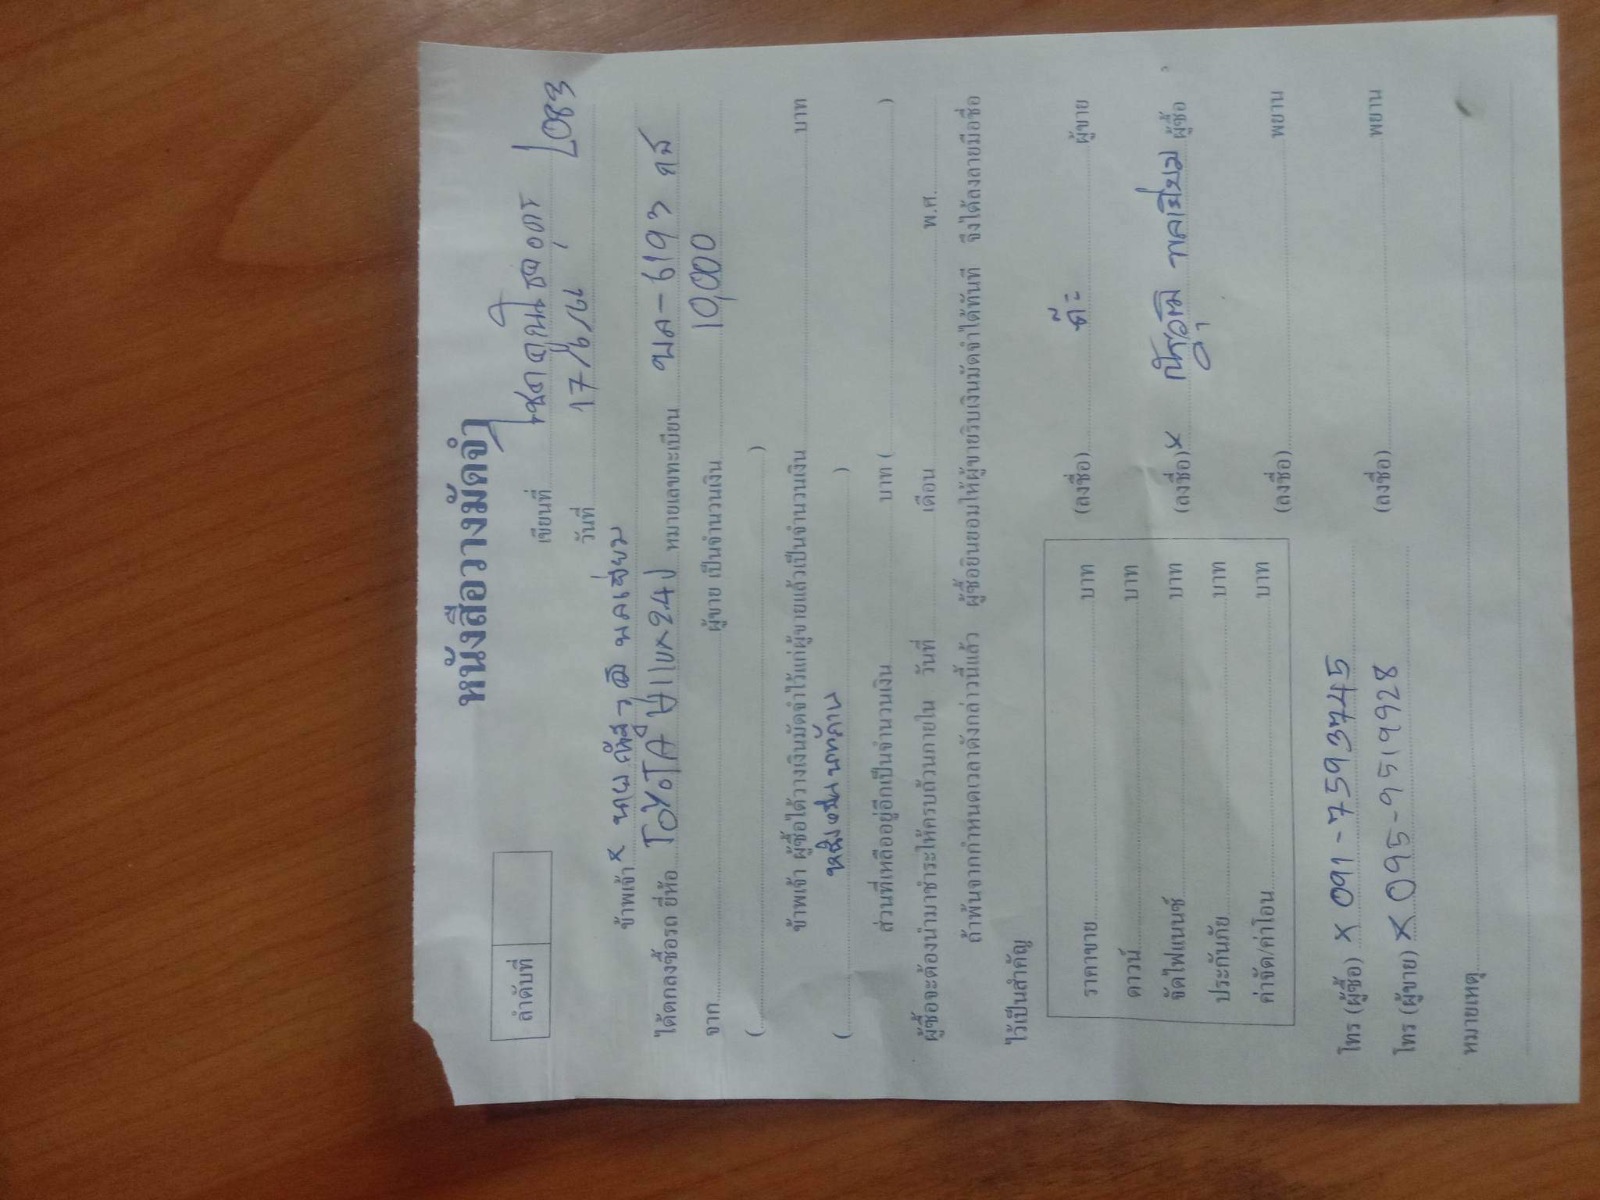 หนังสือวางมัดจำ
ลำดับที่
เขียนที่
L083
วันที่ 17/6/61
ข้าพเจ้า x นาย
ได้ตกลงซื้อรถ ยี่ห้อ TOYOTA หมายเลขทะเบียน - 6193
จาก ผู้ขาย เป็นจำนวนเงิน 10,000
( )
ข้าพเจ้า ผู้ซื้อได้วางเงินมัดจำไว้แก่ผู้ขายแล้วเป็นจำนวนเงิน บาท
( หนึ่งหมื่นบาทถ้วน )
ส่วนที่เหลืออยู่อีกเป็นจำนวนเงิน บาท ( )
ผู้ซื้อจะต้องนำมาชำระให้ครบถ้วนภายใน วันที่ เดือน พ.ศ.
ถ้าพ้นจากกำหนดเวลาดังกล่าวนี้แล้ว ผู้ซื้อยินยอมให้ผู้ขายริบเงินมัดจำได้ทันที จึงได้ลงลายมือชื่อ
ไว้เป็นสำคัญ
ราคาขาย บาท
ดาวน์ บาท
จัดไฟแนนซ์ บาท
ประกันภัย บาท
ค่าจัด/ค่าโอน บาท
(ลงชื่อ) ผู้ขาย
(ลงชื่อ) x ผู้ซื้อ
(ลงชื่อ) พยาน
(ลงชื่อ) พยาน
โทร (ผู้ซื้อ) x 091-7593745
โทร (ผู้ขาย) x 095-9519928
หมายเหตุ